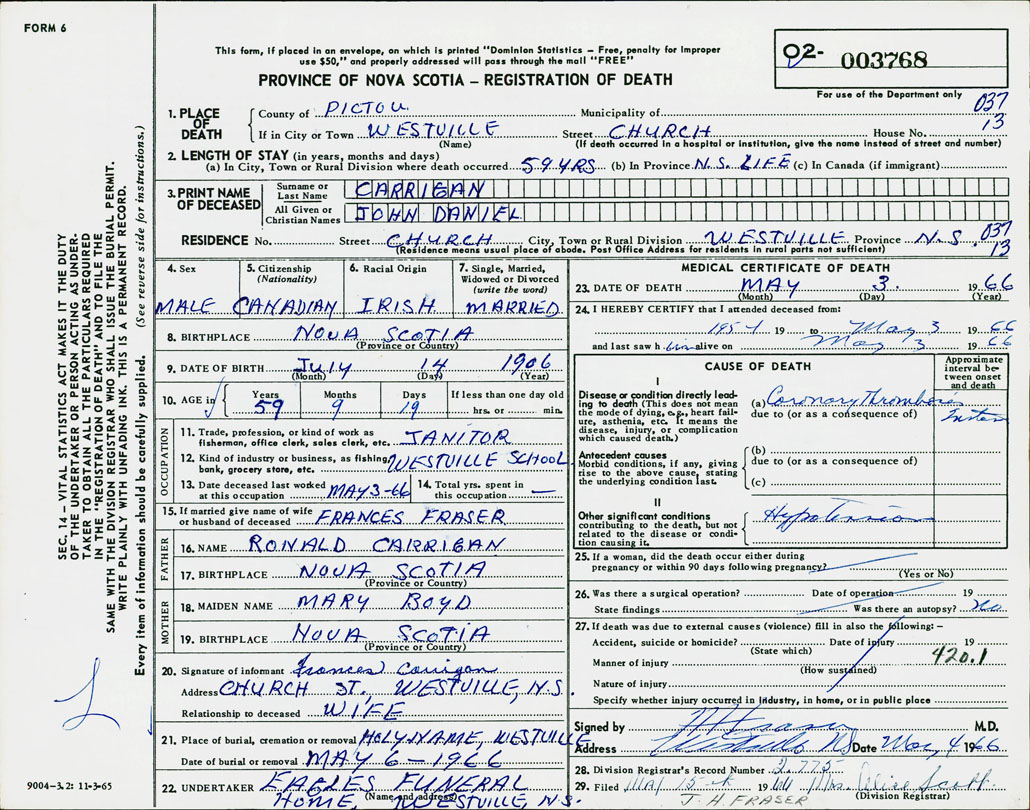 FORM 6
This form, if placed in an envelope, on which is printed "Dominion Statistics – Free, penalty for improper
use $50," and properly addressed will pass through the mail "FREE"
PROVINCE OF NOVA SCOTIA – REGISTRATION OF DEATH
02- 003768
For use of the Department only
037
13
1. PLACE OF DEATH
County of PICTOU Municipality of
If in City or Town WESTVILLE Street CHURCH House No.
(Name) (If death occurred in a hospital or institution, give the name instead of street and number)
2. LENGTH OF STAY (in years, months and days)
(a) In City, Town or Rural Division where death occurred 59 YRS (b) In Province N.S. LIFE (c) In Canada (if immigrant)
3. PRINT NAME OF DECEASED
Surname or Last Name CARRIGAN
All Given or Christian Names JOHN DANIEL
RESIDENCE No. Street CHURCH City, Town or Rural Division WESTVILLE Province N.S. 037
13
(Residence means usual place of abode. Post Office Address for residents in rural parts not sufficient)
4. Sex
MALE
5. Citizenship
(Nationality)
CANADIAN
6. Racial Origin
IRISH
7. Single, Married,
Widowed or Divorced
(write the word)
MARRIED
8. BIRTHPLACE NOVA SCOTIA
(Province or Country)
9. DATE OF BIRTH July 14 1906
(Month) (Day) (Year)
10. AGE in
Years Months Days If less than one day old
59 9 19 hrs. or min.
OCCUPATION
11. Trade, profession, or kind of work as
fisherman, office clerk, sales clerk, etc. JANITOR
12. Kind of industry or business, as fishing,
bank, grocery store, etc. WESTVILLE SCHOOL
13. Date deceased last worked
at this occupation MAY 3-66
14. Total yrs. spent in
this occupation —
15. If married give name of wife
or husband of deceased FRANCES FRASER
FATHER
16. NAME RONALD CARRIGAN
17. BIRTHPLACE NOVA SCOTIA
(Province or Country)
MOTHER
18. MAIDEN NAME MARY BOYD
19. BIRTHPLACE NOVA SCOTIA
(Province or Country)
20. Signature of informant Frances Carrigan
Address CHURCH ST., WESTVILLE, N.S.
Relationship to deceased WIFE
21. Place of burial, cremation or removal HOLY NAME, WESTVILLE
Date of burial or removal MAY 6 – 1966
22. UNDERTAKER EAGLES FUNERAL
(Name and address)
HOME, WESTVILLE, N.S.
MEDICAL CERTIFICATE OF DEATH
23. DATE OF DEATH MAY 3. 1966
(Month) (Day) (Year)
24. I HEREBY CERTIFY that I attended deceased from:
19 to May 3 19 66
and last saw h im alive on May 3 19 66
CAUSE OF DEATH
Approximate
interval be-
tween onset
and death
I
Disease or condition directly lead-
ing to death (This does not mean
the mode of dying, e.g., heart fail-
ure, asthenia, etc. It means the
disease, injury, or complication
which caused death.)
(a) Coronary Thrombosis
due to (or as a consequence of)
Antecedent causes
Morbid conditions, if any, giving
rise to the above cause, stating
the underlying condition last.
(b)
due to (or as a consequence of)
(c)
II
Other significant conditions
contributing to the death, but not
related to the disease or condi-
tion causing it.
25. If a woman, did the death occur either during
pregnancy or within 90 days following pregnancy?
(Yes or No)
26. Was there a surgical operation? Date of operation 19
State findings Was there an autopsy? No
27. If death was due to external causes (violence) fill in also the following: –
Accident, suicide or homicide? Date of injury 19
(State which)
420.1
Manner of injury
(How sustained)
Nature of injury
Specify whether injury occurred in industry, in home, or in public place
Signed by M.D.
Address Westville NS Date May 4 1966
28. Division Registrar's Record Number 2,775
29. Filed May 15th 19 Mrs. Alise Scott
(Division Registrar)
J. H. FRASER
SEC. 14 – VITAL STATISTICS ACT MAKES IT THE DUTY
OF THE UNDERTAKER OR PERSON ACTING AS UNDER-
TAKER TO OBTAIN ALL THE PARTICULARS REQUIRED
IN THE "REGISTRATION OF DEATH" AND TO FILE THE
SAME WITH THE DIVISION REGISTRAR WHO SHALL ISSUE THE BURIAL PERMIT.
WRITE PLAINLY WITH UNFADING INK. THIS IS A PERMANENT RECORD.
Every item of information should be carefully supplied. (See reverse side for instructions.)
9004-3.2: 11-3-65